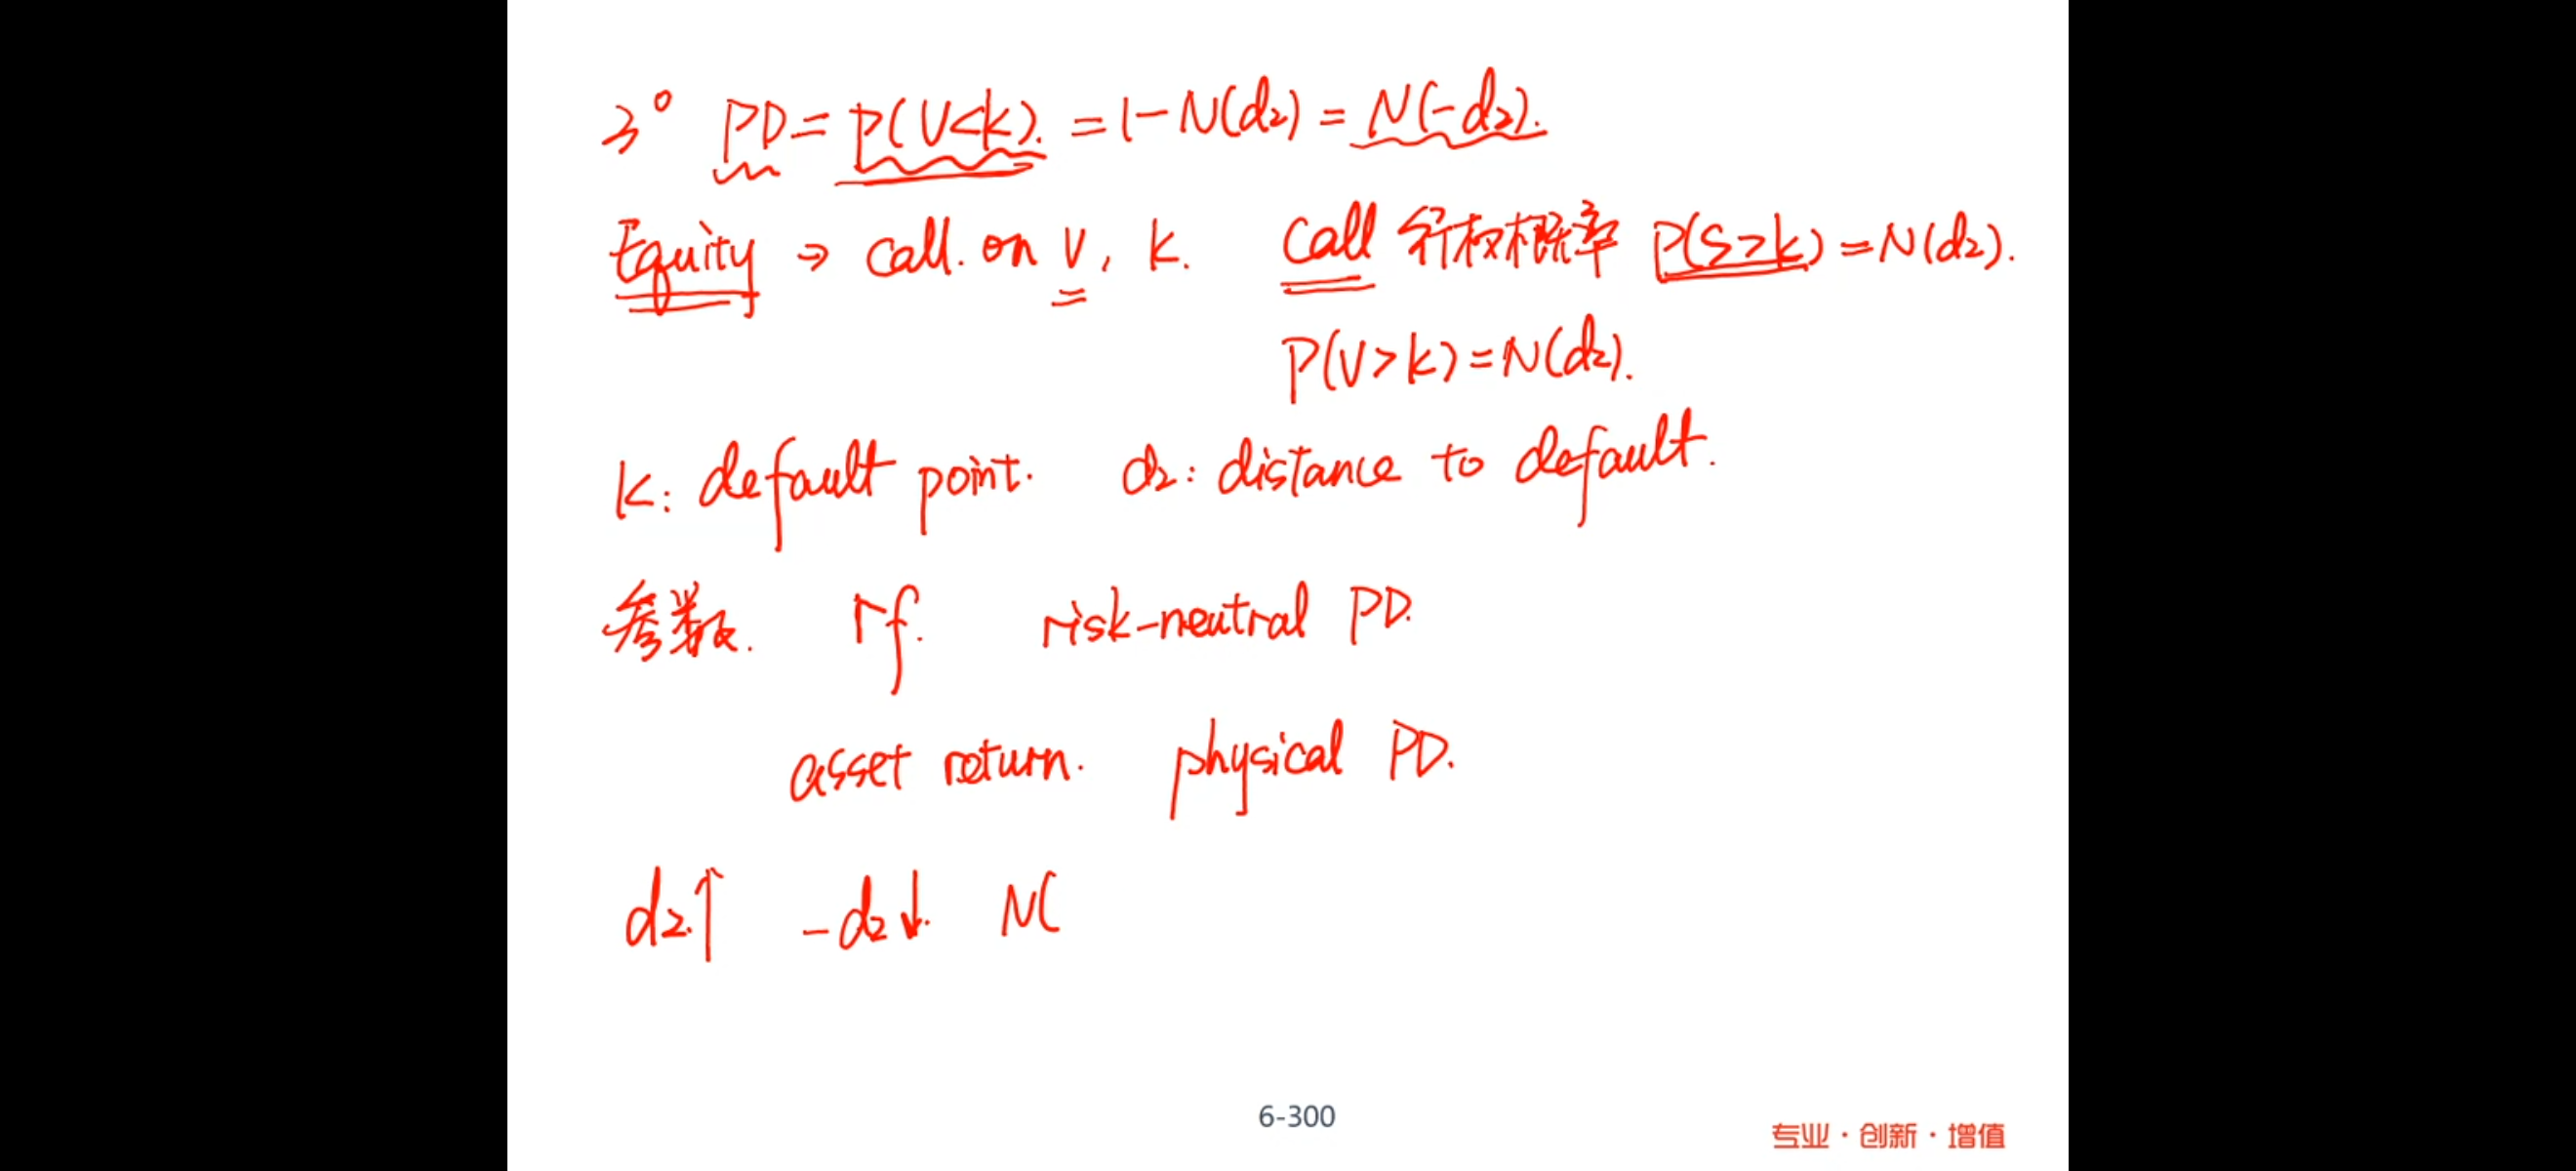 3° PD = P(V<K). = 1-N(d2) = N(-d2).
Equity → call. on V, K. Call 行权概率 P(S>K) = N(d2).
P(V>K) = N(d2).
K: default point. d2: distance to default.
参数. rf. risk-neutral PD.
asset return. physical PD.
d2.↑ -d2↓. N(
6-300
专业·创新·增值